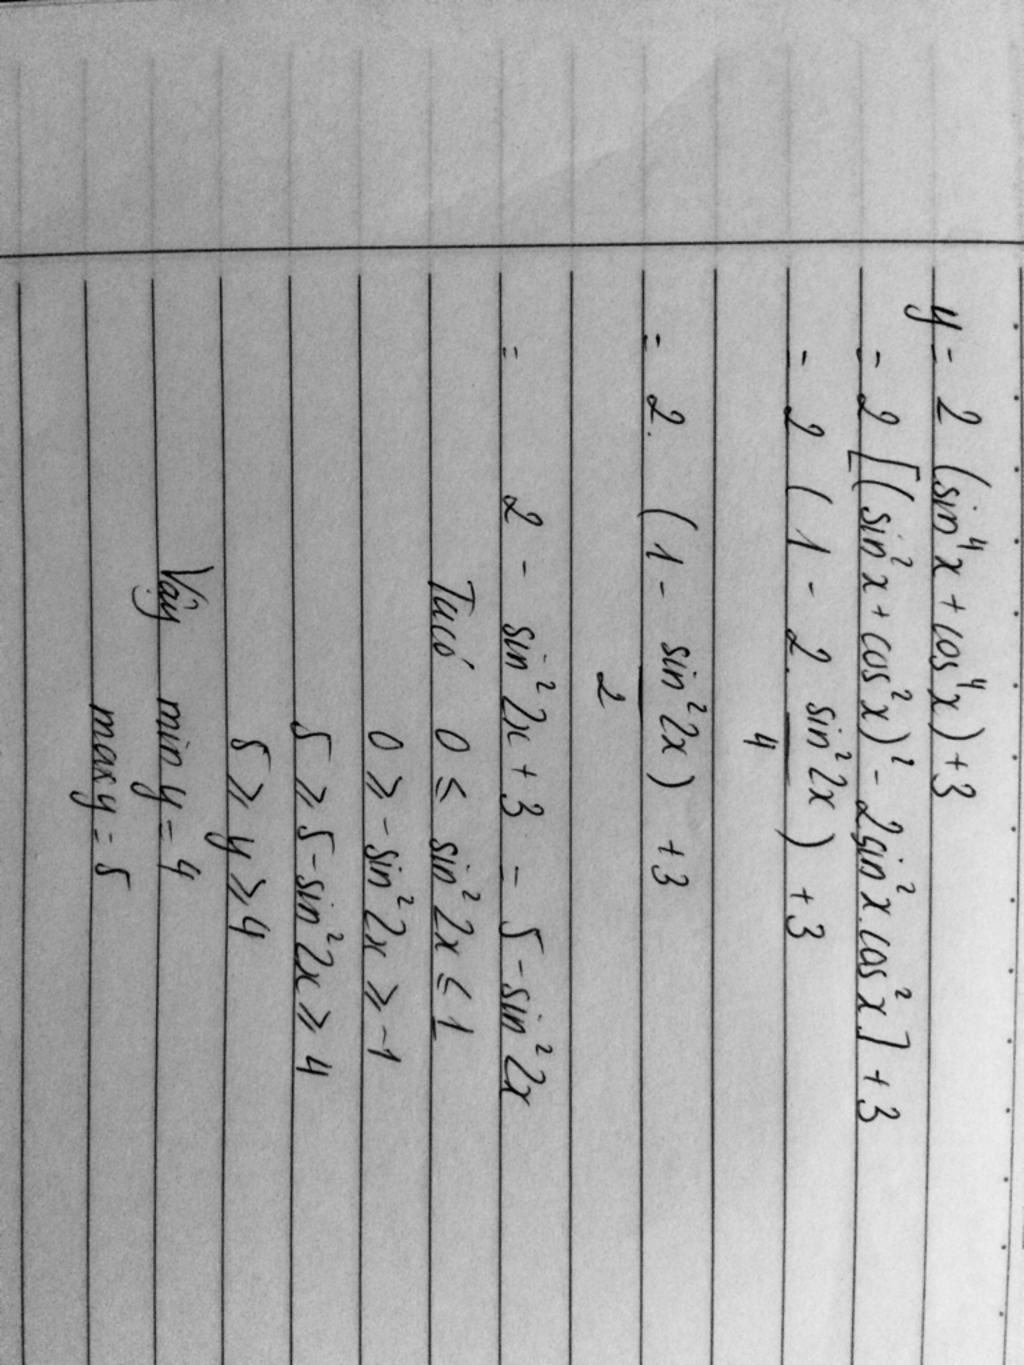 y = 2 (sin⁴x + cos⁴x) + 3
= 2 [(sin²x + cos²x)² - 2sin²x.cos²x] + 3
= 2 (1 - 2. sin²2x/4) + 3
= 2. (1 - sin²2x/2) + 3
= 2 - sin²2x + 3 = 5 - sin²2x
Ta có 0 ≤ sin²2x ≤ 1
0 ≥ -sin²2x ≥ -1
5 ≥ 5 - sin²2x ≥ 4
5 ≥ y ≥ 4
Vậy min y = 4
max y = 5